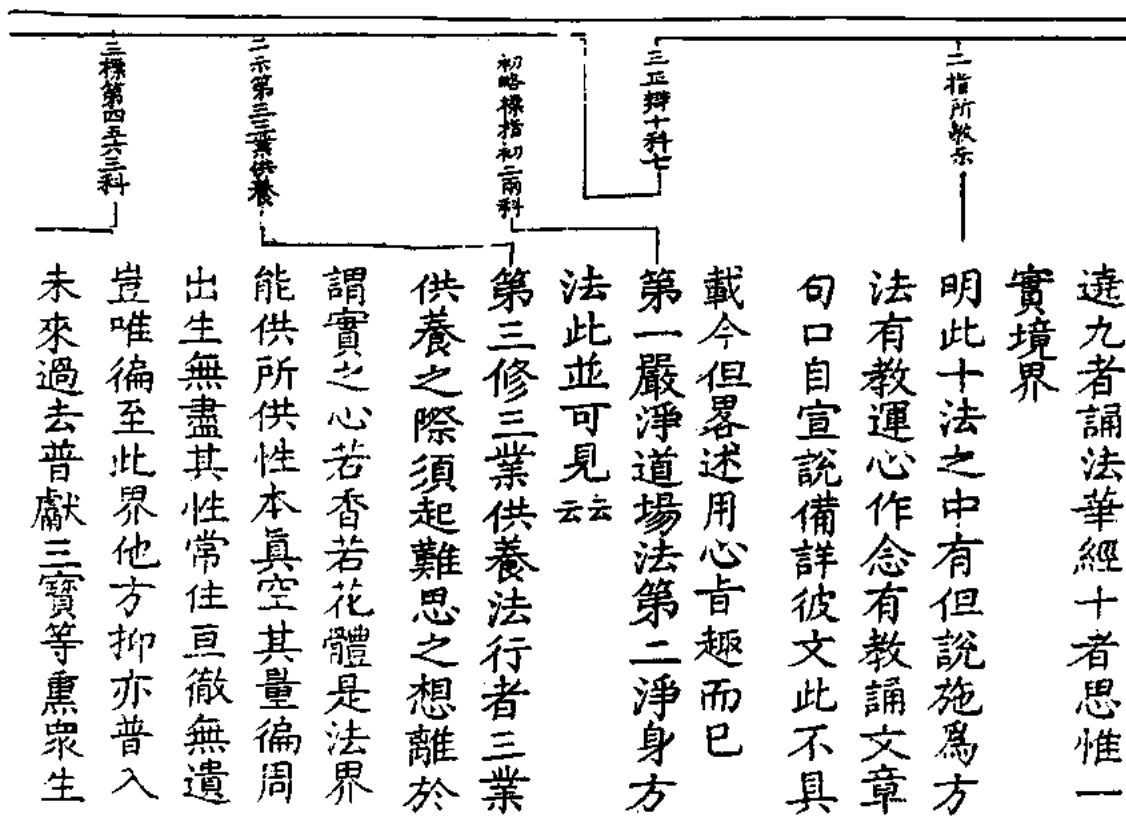 遶九者誦法華經十者思惟一
實境界
二指所教示
明此十法之中有但說施爲方
法有教運心作念有教誦文章
句口自宣說備詳彼文此不具
載今但畧述用心旨趣而已
三正辯十科七
初略標指初二兩科
第一嚴淨道場法第二淨身方
法此並可見云云
二示第三三業供養
第三修三業供養法行者三業
供養之際須起難思之想離於
謂實之心若香若花體是法界
能供所供性本眞空其量徧周
出生無盡其性常住亘徹無遺
豈唯徧至此界他方抑亦普入
未來過去普獻三寶等熏衆生
三標第四五六三科